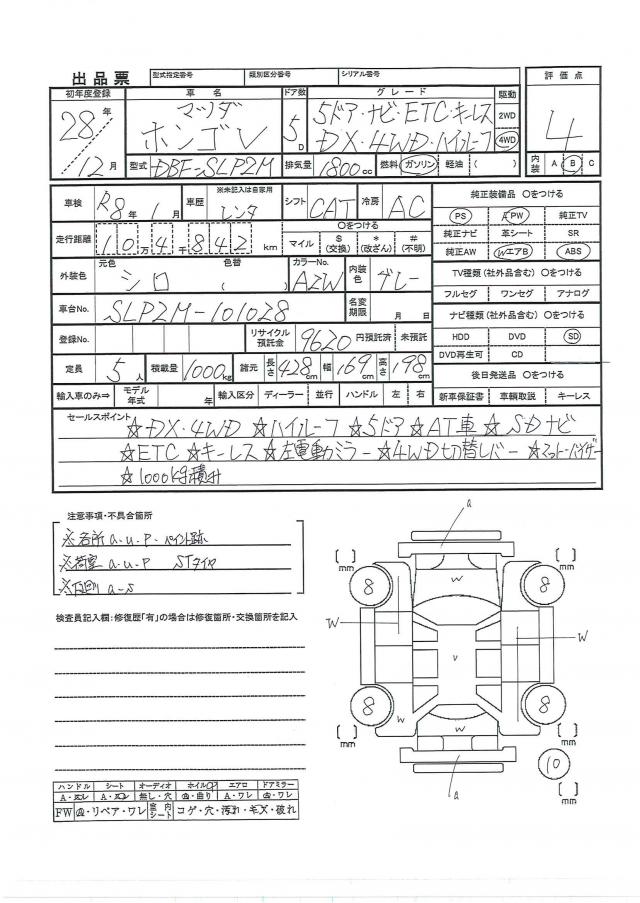 出品票 型式指定番号 類別区分番号 シリアル番号
初年度登録 車名 ドア数 グレード 駆動 評価点
28年 マツダ 5ドア・ナビ・ETC・キーレス 2WD
ボンゴV 5D DX・4WD・ハイルーフ 4WD 4
12月 型式 DBF-SLP2M 排気量 1800cc 燃料 ガソリン 軽油 ( ) 内装 A B C
車検 R8年1月 車歴 ※未記入は自家用 レンタ シフト CAT 冷房 AC 純正装備品 〇をつける
PS PW 純正TV
走行距離 10万4千842km 〇をつける マイル $(交換) *(改ざん) #(不明) 純正ナビ 革シート SR
純正AW WエアB ABS
外装色 元色 シロ 色替 ( ) カラーNo. A2W 内装色 グレー TV種類(社外品含む) 〇をつける
フルセグ ワンセグ アナログ
車台No. SLP2M-101028 名変期限 月 日 ナビ種類(社外品含む) 〇をつける
登録No. リサイクル預託金 9620円預託済 未預託 HDD DVD SD
DVD再生可 CD
定員 5人 積載量 1000kg 諸元 長さ 428cm 幅 169cm 高さ 198cm 後日発送品 〇をつける
輸入車のみ⇒ モデル年式 年 輸入区分 ディーラー 並行 ハンドル 左 右 新車保証書 車輌取説 キーレス
セールスポイント
☆DX・4WD ☆ハイルーフ ☆5ドア ☆AT車 ☆SDナビ
☆ETC ☆キーレス ☆左電動ミラー ☆4WD切替レバー ☆マット・バイザー
☆1000kg積み
注意事項・不具合箇所
※各所 a・u・P・ペイント跡
※荷室 a・u・P STタイヤ
※ a-S
検査員記入欄:修復歴「有」の場合は修復箇所・交換箇所を記入
a
[ ] mm [ ] mm
W
8 8
W W
V
8 8
W W
[ ] mm [ ] mm
a
10
[ ] mm
ハンドル シート オーディオ ホイル エアロ ドアミラー
A・スレ A・スレ 無し・穴 曲り A・ワレ ワレ
FW リペア・ワレ 室内シート コゲ・穴・汚れ・キズ・破れ